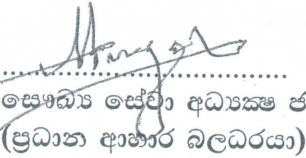 සෞඛ්‍ය සේවා අධ්‍යක්ෂ ජ
(ප්‍රධාන ආහාර බලධරයා)